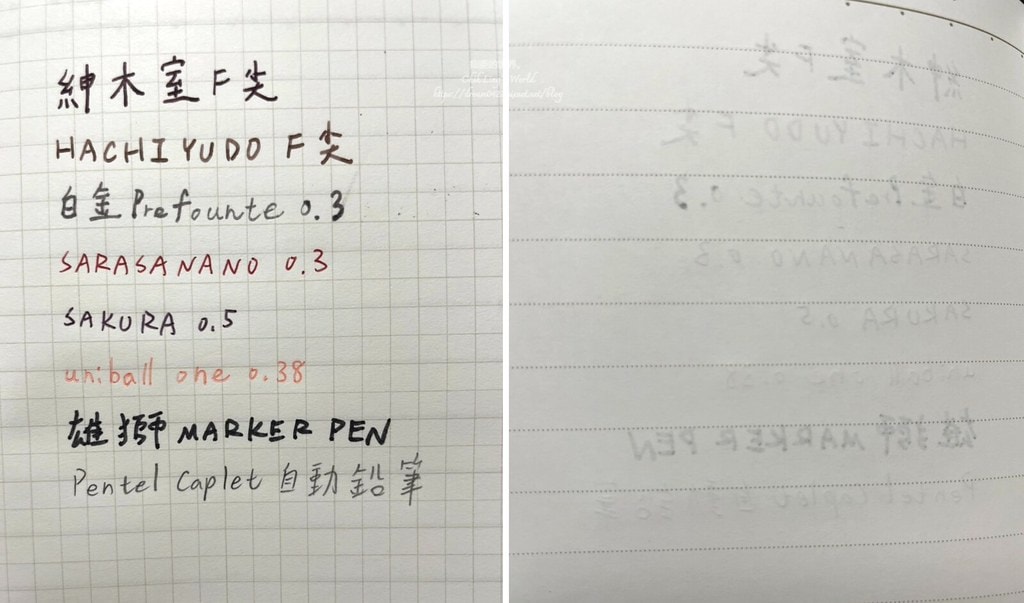 紳木室 F尖
HACHIYUDO F尖
白金 Prefounte 0.3
SARASA NANO 0.3
SAKURA 0.5
uniball one 0.38
雄獅 MARKER PEN
Pentel Caplet 自動鉛筆